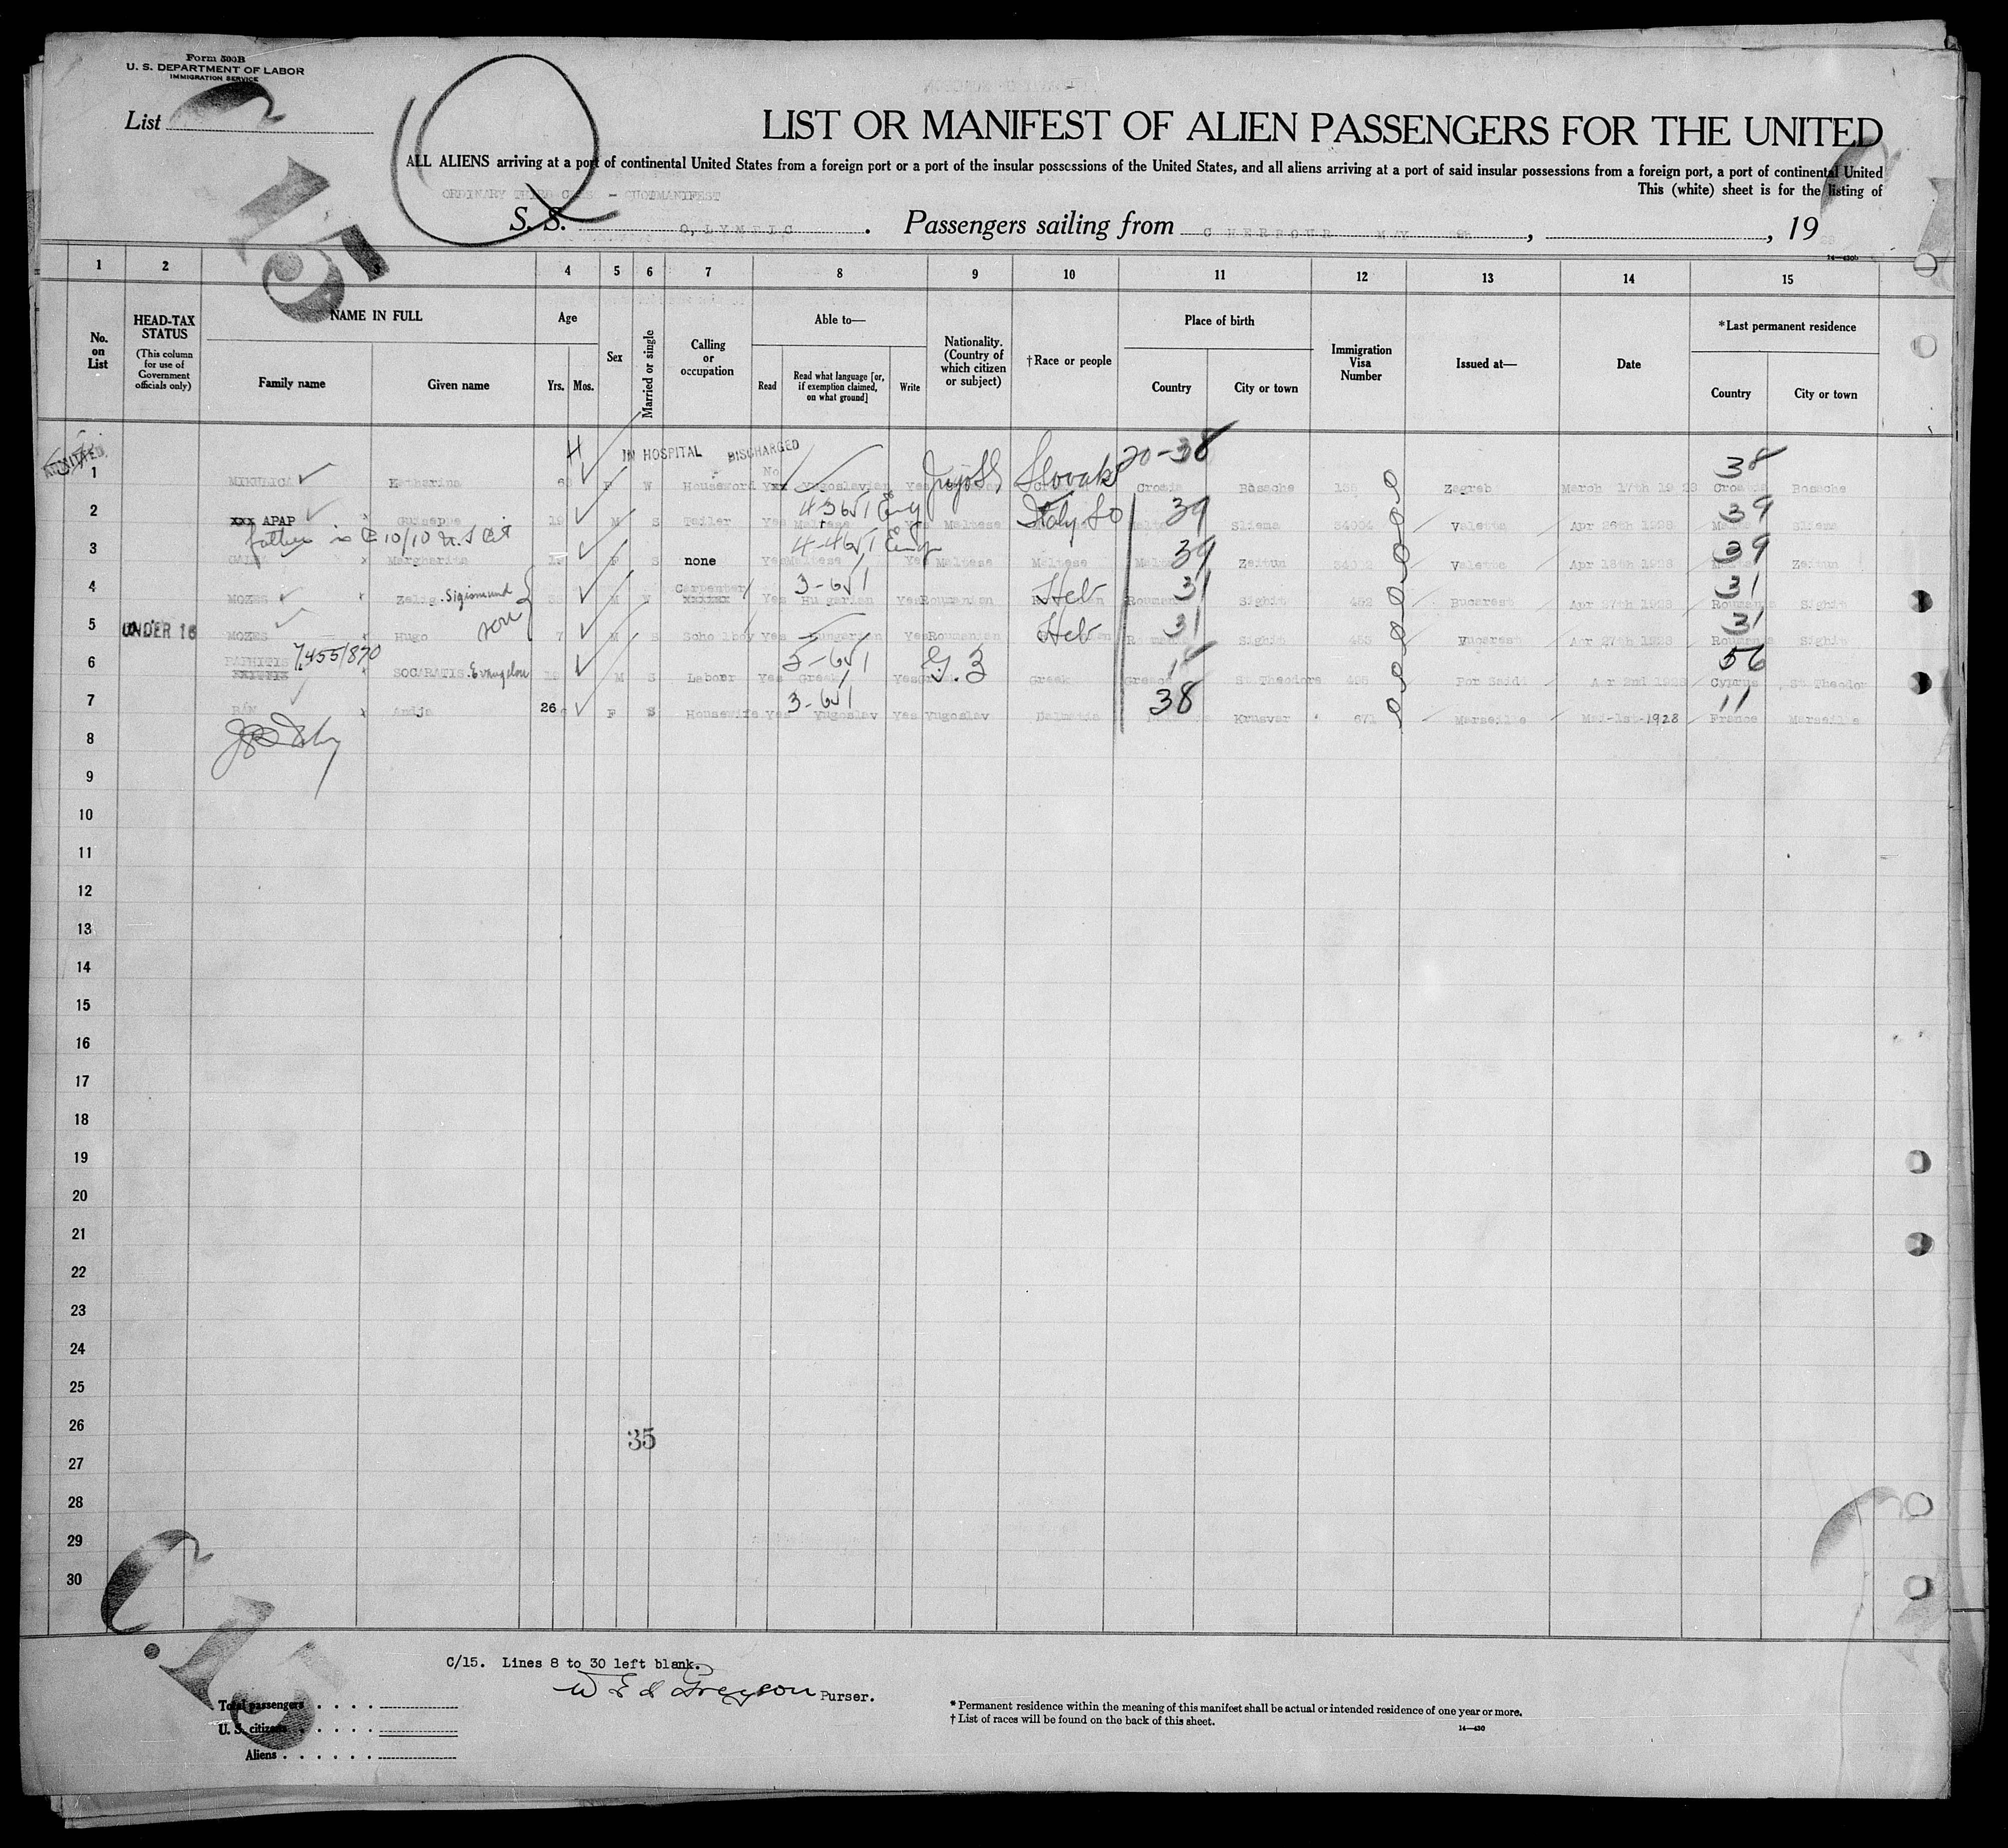 Form 500B
U. S. DEPARTMENT OF LABOR
IMMIGRATION SERVICE
List
C 15
LIST OR MANIFEST OF ALIEN PASSENGERS FOR THE UNITED
ALL ALIENS arriving at a port of continental United States from a foreign port or a port of the insular possessions of the United States, and all aliens arriving at a port of said insular possessions from a foreign port, a port of continental United
This (white) sheet is for the listing of
ORDINARY THIRD - MANIFEST
S. S. OLYMPIC. Passengers sailing from CHERBOURG MAY , , 19
14—430b
1 2 3 4 5 6 7 8 9 10 11 12 13 14 15
No. on List
HEAD-TAX STATUS
(This column for use of Government officials only)
NAME IN FULL
Family name Given name
Age
Yrs. Mos.
Sex
Married or single
Calling or occupation
Able to—
Read Read what language [or, if exemption claimed, on what ground] Write
Nationality. (Country of which citizen or subject)
†Race or people
Place of birth
Country City or town
Immigration Visa Number
Issued at—
Date
*Last permanent residence
Country City or town
ADMITTED IN HOSPITAL DISCHARGED 20-38 38
1 Katharina F W No xxx Yugoslavian Yes JugoSl Slovak Croatia Bosache Zagreb March 17th 1928 Croatia Bosache
4-3651 Eng 39 39
2 xxx APAP x Guiseppe 19 M S Tailer Yes Maltese Yes Maltese Italy So Sliema 34004 Valetta Apr 26th 1928 Sliema
father is @ 10/10 U.S Cit 4-4651 Eng 39 39
3 x Margherita F S none Yes Maltese Yes Maltese Maltese Zeitun Valetta Apr 18th 1928 Zeitun
3-651 Heb 31 31
4 MOZES x Zelig. Sigismund M W Carpenter xxxxxx Yes Hungarian Yes Roumanian Roumania Sighit 492 Bucarest Apr 27th 1928 Roumania Sighit
son Heb 31 31
5 UNDER 16 MOZES x Hugo 7 M S Schoolboy Yes Hungarian Yes Roumanian Sighit 493 Bucarest Apr 27th 1928 Roumania Sighit
7,455/870 5-651 G. 3 56
6 x SOCARATIS. Evangelou M S Laborr Yes Greek Yes Greek Greece St Theodore Por Said Apr 2nd 1928 Cyprus St Theodor
3-651 38 11
7 x Andja 26 F S Housewife Yes Yugoslav Yes Yugoslav Dalmatia Krusvar 671 Marseille Mai-1st-1928 France Marseille
8
9
10
11
12
13
14
15
16
17
18
19
20
21
22
23
24
25
26
35
27
28
29
30
C. 15
C/15. Lines 8 to 30 left blank.
Purser.
Total passengers . . . .
U. S. citizens . . . . .
Aliens . . . . . .
* Permanent residence within the meaning of this manifest shall be actual or intended residence of one year or more.
† List of races will be found on the back of this sheet.
14—430